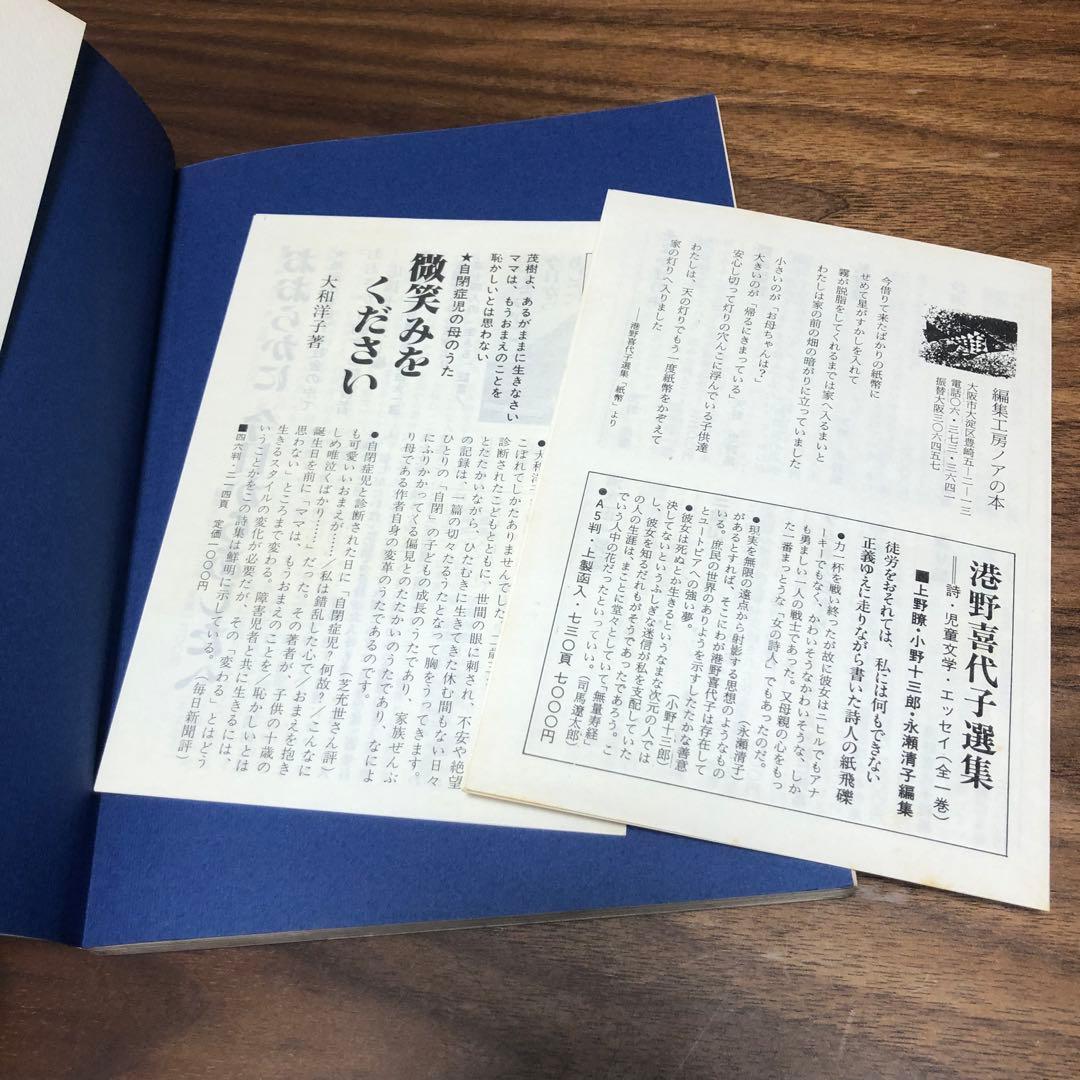 編集工房ノアの本
大阪市大淀区豊崎五—二—一三
電話〇六・三七三・三六四一
振替大阪三〇六四五七
今借りて来たばかりの紙幣に
せめて星がすかしを入れて
霧が脱脂をしてくれるまでは家へ入るまいと
わたしは家の前の畑の暗がりに立っていました
小さいのが「お母ちゃんは?」
大きいのが「帰るにきまっている」
安心し切って灯りの穴んこに浮んでいる子供達
わたしは、天の灯りでもう一度紙幣をかぞえて
家の灯りへ入りました
——港野喜代子選集「紙幣」より
港野喜代子選集
——詩・児童文学・エッセイ(全一巻)
■上野瞭・小野十三郎・永瀬清子編集
徒労をおそれては、私には何もできない
正義ゆえに走りながら書いた詩人の紙飛礫
●力一杯を戦い終ったが故に彼女はニヒルでもアナ
ーキーでもなく、かわいそうなかわいそうな、しか
も勇ましい一人の戦士であった。又母親の心をもっ
た一番まっとうな「女の詩人」でもあったのだ。
(永瀬清子)
●現実を無限の遠点から射影する思想のようなもの
があるとすれば、そこにわが港野喜代子は存在して
いる。庶民の世界のありようを示すしたたかな善意
とユートピアへの強い夢。
(小野十三郎)
●彼女は死ぬとか生きるとかというようななまな次元の人では
決してないというふしぎな迷信が私を支配していた
し、彼女を知るだれもがそうであったであろう。こ
の人の生涯は、まことに堂々としていて「無量寿経」
でいう人中の花だったといっていい。(司馬遼太郎)
●A5判・上製函入・七三〇頁 七〇〇〇円
茂樹よ、あるがままに生きなさい
ママは、もうおまえのことを
恥かしいとは思わない
★自閉症児の母のうた
微笑みを
ください
大和洋子著
●大和洋
こぼれてしかたありませんでした
診断されたこどもとともに、世間の眼に刺され、不安や絶望
とたたかいながら、ひたむきに生きてきた休む間もない日々
の記録は、一篇の切々たるうたとなって胸をうってきます。
ひとりの「自閉」の子どもの成長のうたであり、家族ぜんぶ
にふりかかってくる偏見とのたたかいのうたであり、なによ
り母である作者自身の変革のうたであるのです。
(芝充世さん評)
●自閉症児と診断された日に「自閉症児?何故?/こんなに
も可愛いいおまえが……/私は錯乱した心で/おまえを抱き
しめ唯泣くばかり……」だった。その著者が、子供の十歳の
誕生日を前に「ママは、もうおまえのことを/恥かしいとは
思わない」ところまで変わる。障害児者と共に生きるには、
生きるスタイルの変化が必要だが、その「変わる」とはどう
いうことかをこの詩集は鮮明に示している。(毎日新聞評)
■四六判・二一四頁 定価一〇〇〇円